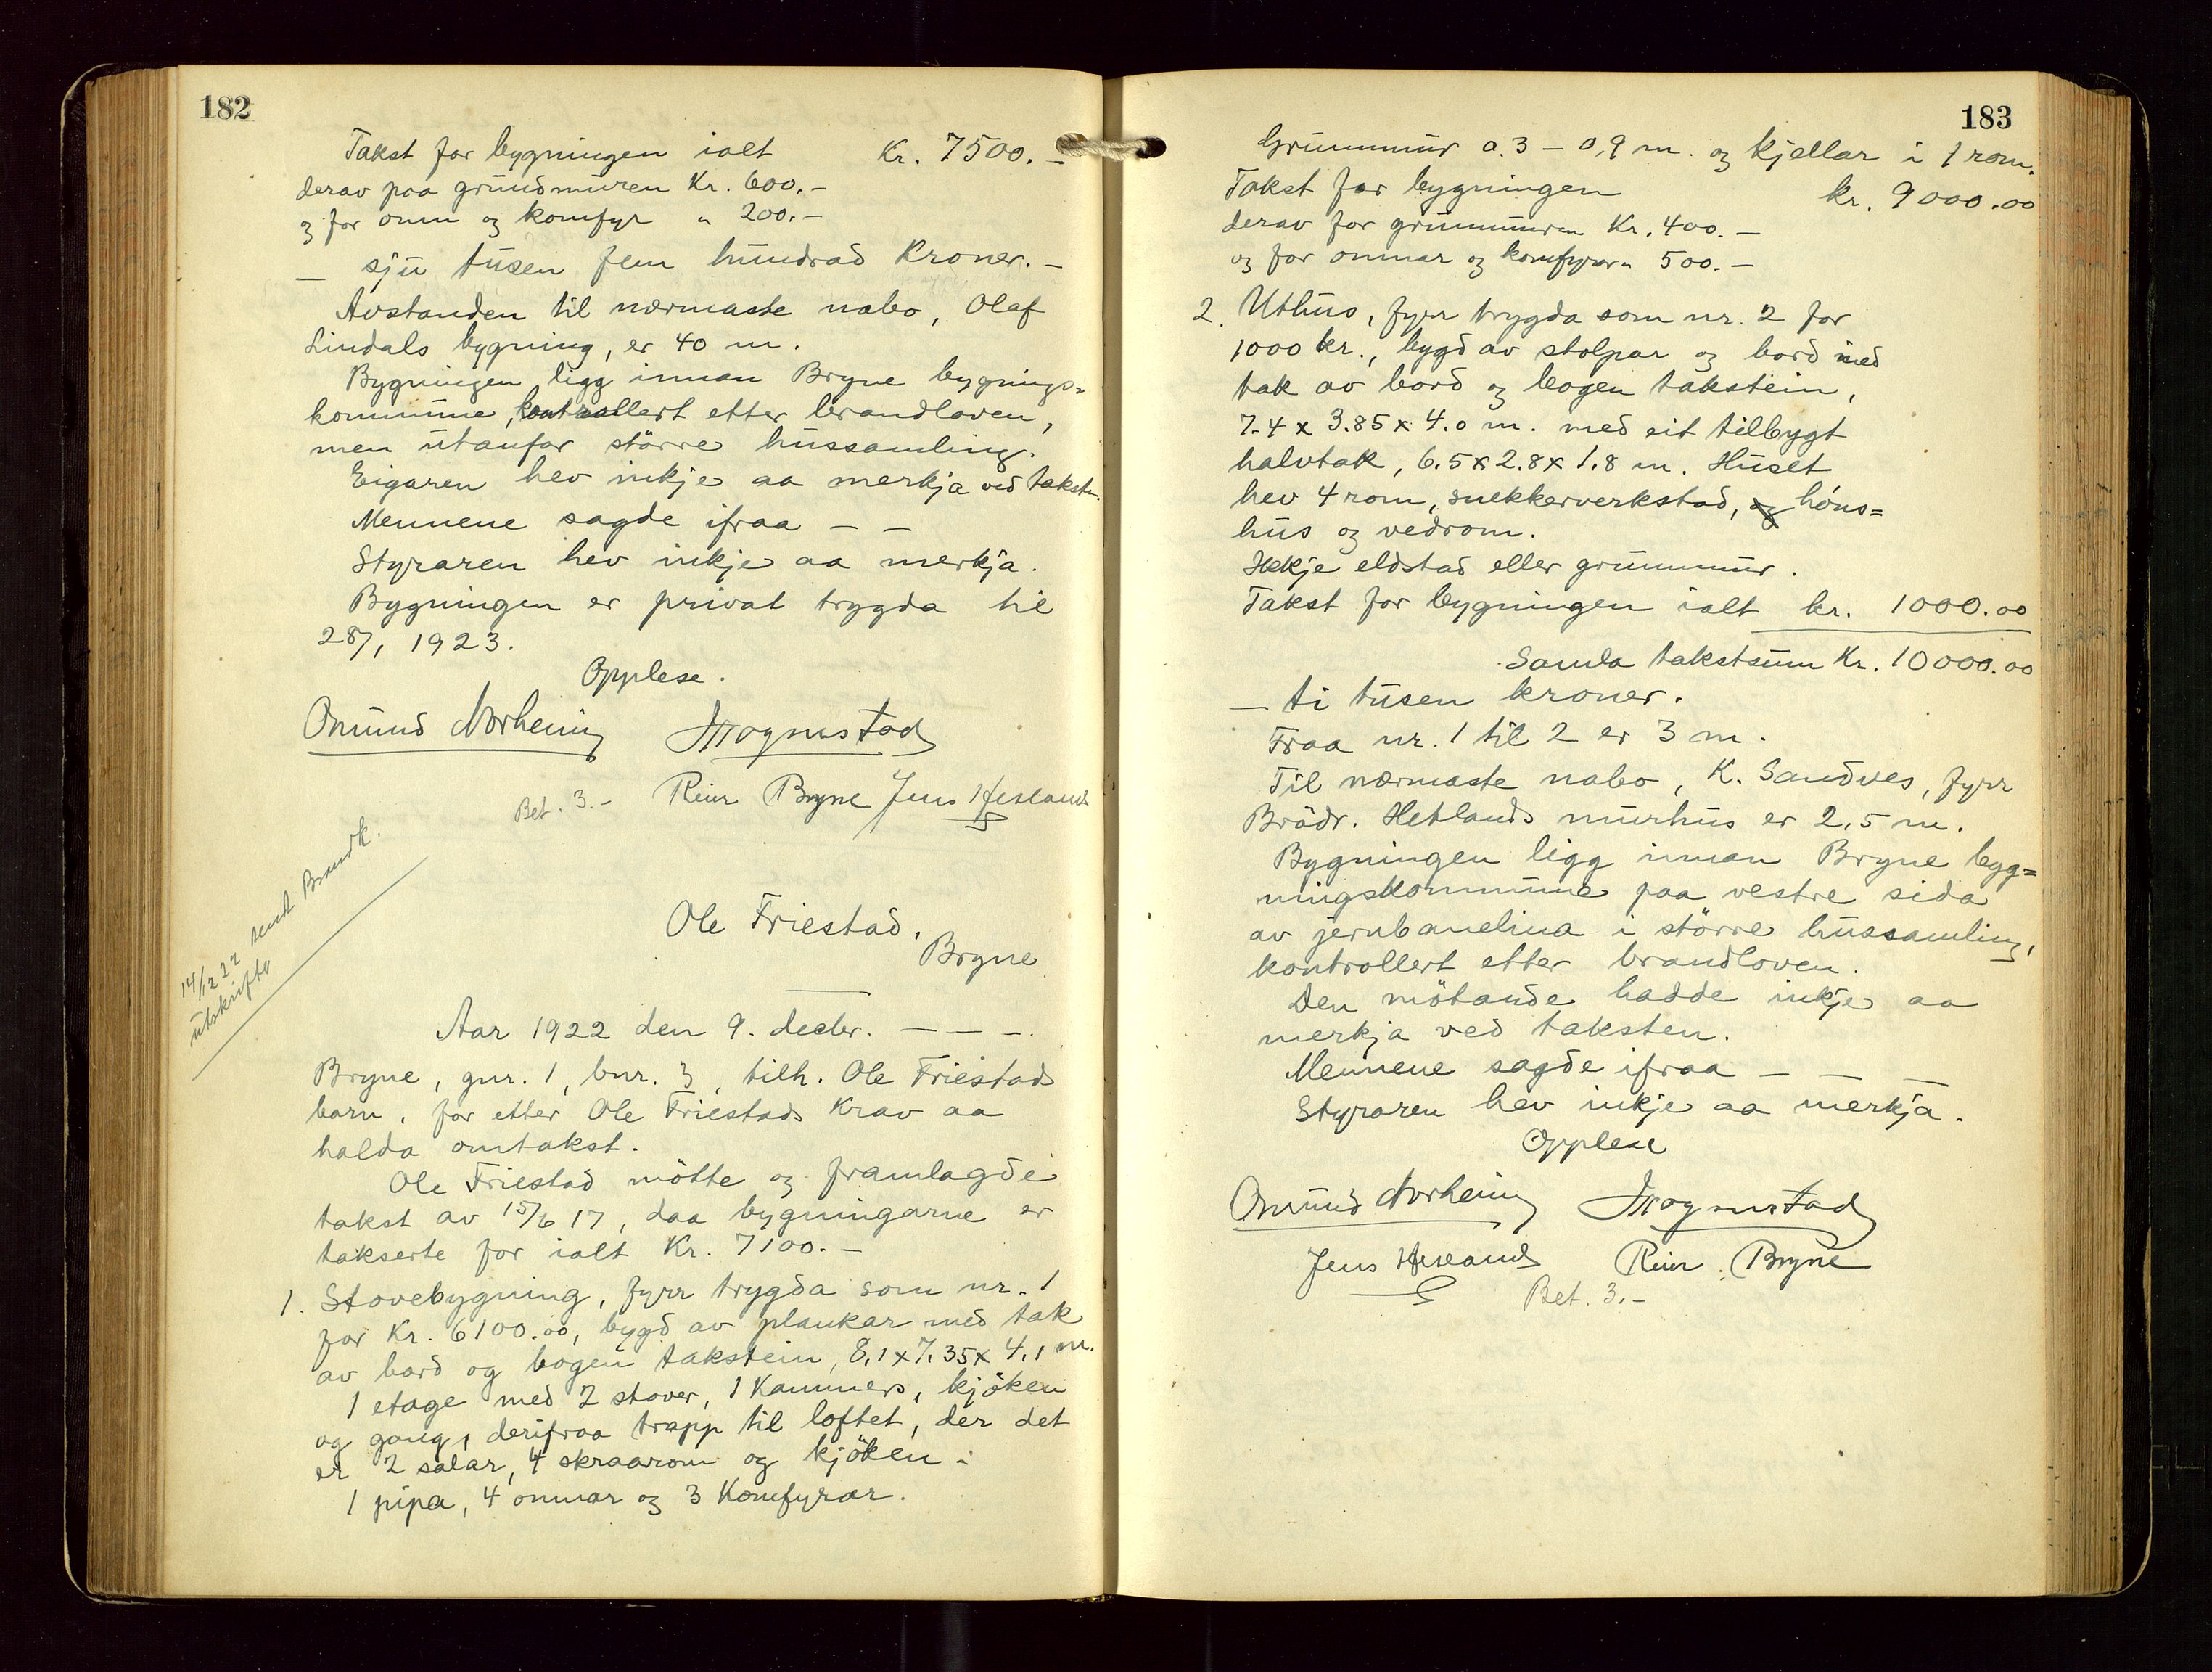 182
Takst for bygningen ialt Kr. 7500.–
derav paa grundmuren Kr. 600.–
og for omn og komfyr " 200.–
– sju tusen fem hundrad Kroner.–
Avstanden til nærmaste nabo, Olaf
Lindals bygning, er 40 m.
Bygningen ligg innan Bryne bygnings=
kommune, kontrollert etter brandloven,
men utanfor större hussamling.
Eigaren hev inkje aa merkja ved taksten.
Mennene sagde ifraa – –
Styraren hev inkje aa merkja.
Bygningen er privat trygda til
28/1 1923.
Opplese.
Onmund Norheim Mognestad
Bet. 3.– Reier Bryne Jens Hesland
14/12 22 send Brandk.
utskrift
Ole Friestad,
Bryne
Aar 1922 den 9. decbr. – – –
Bryne, gnr. 1, bnr. 3, tilh. Ole Friestads
barn, for etter Ole Friestads krav aa
halda omtakst.
Ole Friestad mötte og framlagde
takst av 15/6 17, daa bygningarne er
takserte for ialt Kr. 7100.–
1. Stovebygning, fyrr trygda som nr. 1
for Kr. 6100.00, bygd av plankar med tak
av bord og bogen takstein, 8,1 x 7,35 x 4,1 m.
1 etage med 2 stover, 1 Kammers, kjöken
og gang, derifraa trapp til loftet, der det
er 2 salar, 4 skraarom og kjöken.
1 pipa, 4 omnar og 3 Komfyrar.
183
Grunnmur 0.3 – 0,9 m. og kjellar i 1 rom.
Takst for bygningen kr. 9000.00
derav for grunnmuren Kr. 400.–
og for omnar og komfyrar " 500.–
2. Uthus, fyrr trygda som nr. 2 for
1000 kr., bygd av stolpar og bord med
tak av bord og bogen takstein,
7.4 x 3.85 x 4.0 m. med eit tilbygt
halvtak, 6.5 x 2.8 x 1.8 m. Huset
hev 4 rom, snekkerverkstad, og höns=
hus og vedrom.
Ikkje eldstad eller grunnmur.
Takst for bygningen ialt kr. 1000.00
Samla takstsum Kr. 10000.00
– ti tusen kroner.
Fraa nr. 1 til 2 er 3 m.
Til nærmaste nabo, K. Sandves, fyrr
Brödr. Hetlands murhus er 2,5 m.
Bygningen ligg innan Bryne byg=
ningskommune paa vestre sida
av jernbanelina i större hussamling,
kontrollert etter brandloven.
Den mötande hadde inkje aa
merkja ved taksten.
Mennene sagde ifraa – – –
Styraren hev inkje aa merkja.
Opplese
Onmund Norheim Mognestad
Jens Hesland Reier Bryne
Bet. 3.–